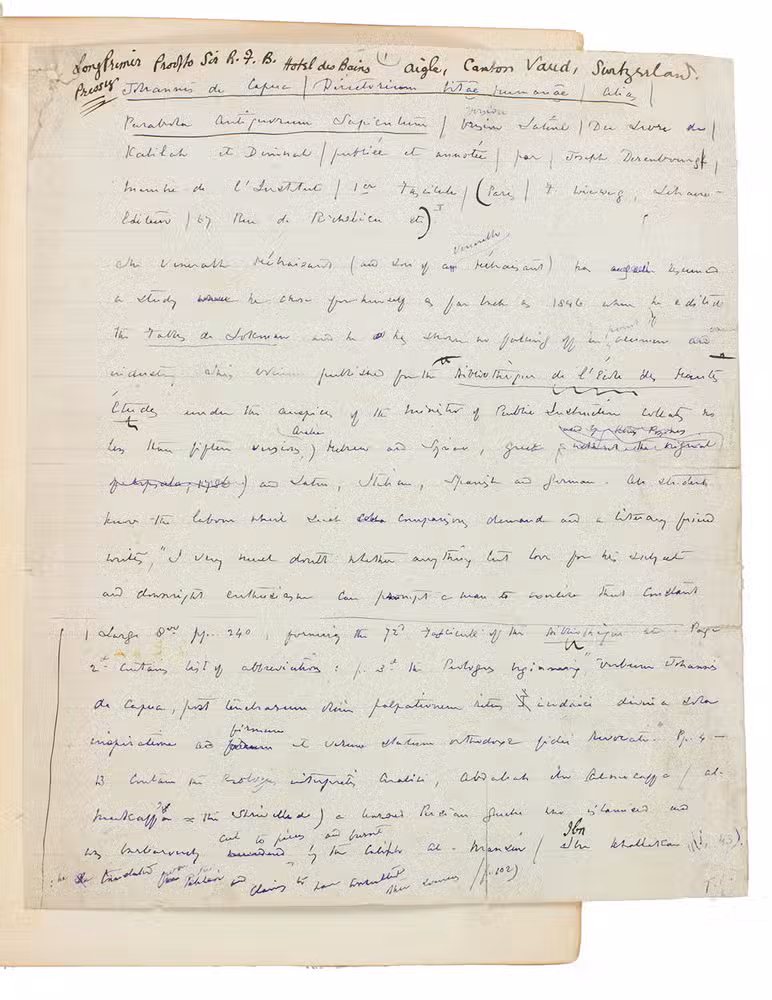 Long Primer Proof to Sir R. F. B. Hotel des Bains Aigle, Canton Vaud, Switzerland.
Press Johannis de Capua | Directorium vitae humanae | alias |
version
Parabola Antiquorum Sapientum | Version Latine | Du Livre de |
Kalilah et Dimnah | publiée et annotée | par | Joseph Derenbourg |
membre de l'Institut | 1er Fascicule | (Paris | F. Vieweg, Libraire-
Editeur | 67 Rue de Richelieu etc) 1
venerable
The venerable Hébraisant (and son of an Hébraisant) has resumed
a study he chose for himself as far back as 1846 when he edited
the Fables de Lokman and he has shown no falling off in and
industry. This volume published for the "Bibliothèque de l'École des Hautes
Études under the auspices of the Minister of Public Instruction collates no
Arabic
less than fifteen versions, Hebrew and Syriac, Greek the original
and Latin, Italian, Spanish and German. All students
know the labour which such comparisons demand and a literary friend
writes, "I very much doubt whether anything but love for his subject
and downright enthusiasm can prompt a man to exercise that constant
1 Large 8vo pp. 240, forming the 72d Fascicule of the Bibliothèque etc. Page
2d contains list of abbreviations: p. 3d the Prologus beginning "Verbum Johannis
de Capua, post tenebrarum olim palpationem ritus iudaici divina sola
firmum
inspiratione ad et verum statum orthodoxe fidei revocati." Pp. 4-
13 contain the Prologus interpretis Arabici, Abdallah ibn Almocaffa (al-
Mukaffa = the Shrivelled) a learned Persian Guebre who islamised and
cut to pieces and burnt
was barbarously by the Caliph al-Mansúr (Ibn Khallikan 43).
: he translated from Pehlevi and claims to have consulted other sources (p. 102)